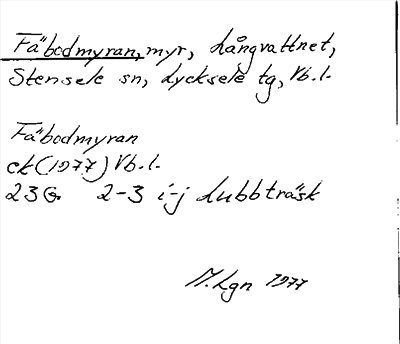 Fäbodmyran, myr, Långvattnet,
Stensele sn, Lycksele tg, Vb.l.
Fäbodmyran
ek (1977) Vb.l.
23G 2-3 i-j Lubbträsk
M.Lgn 1977